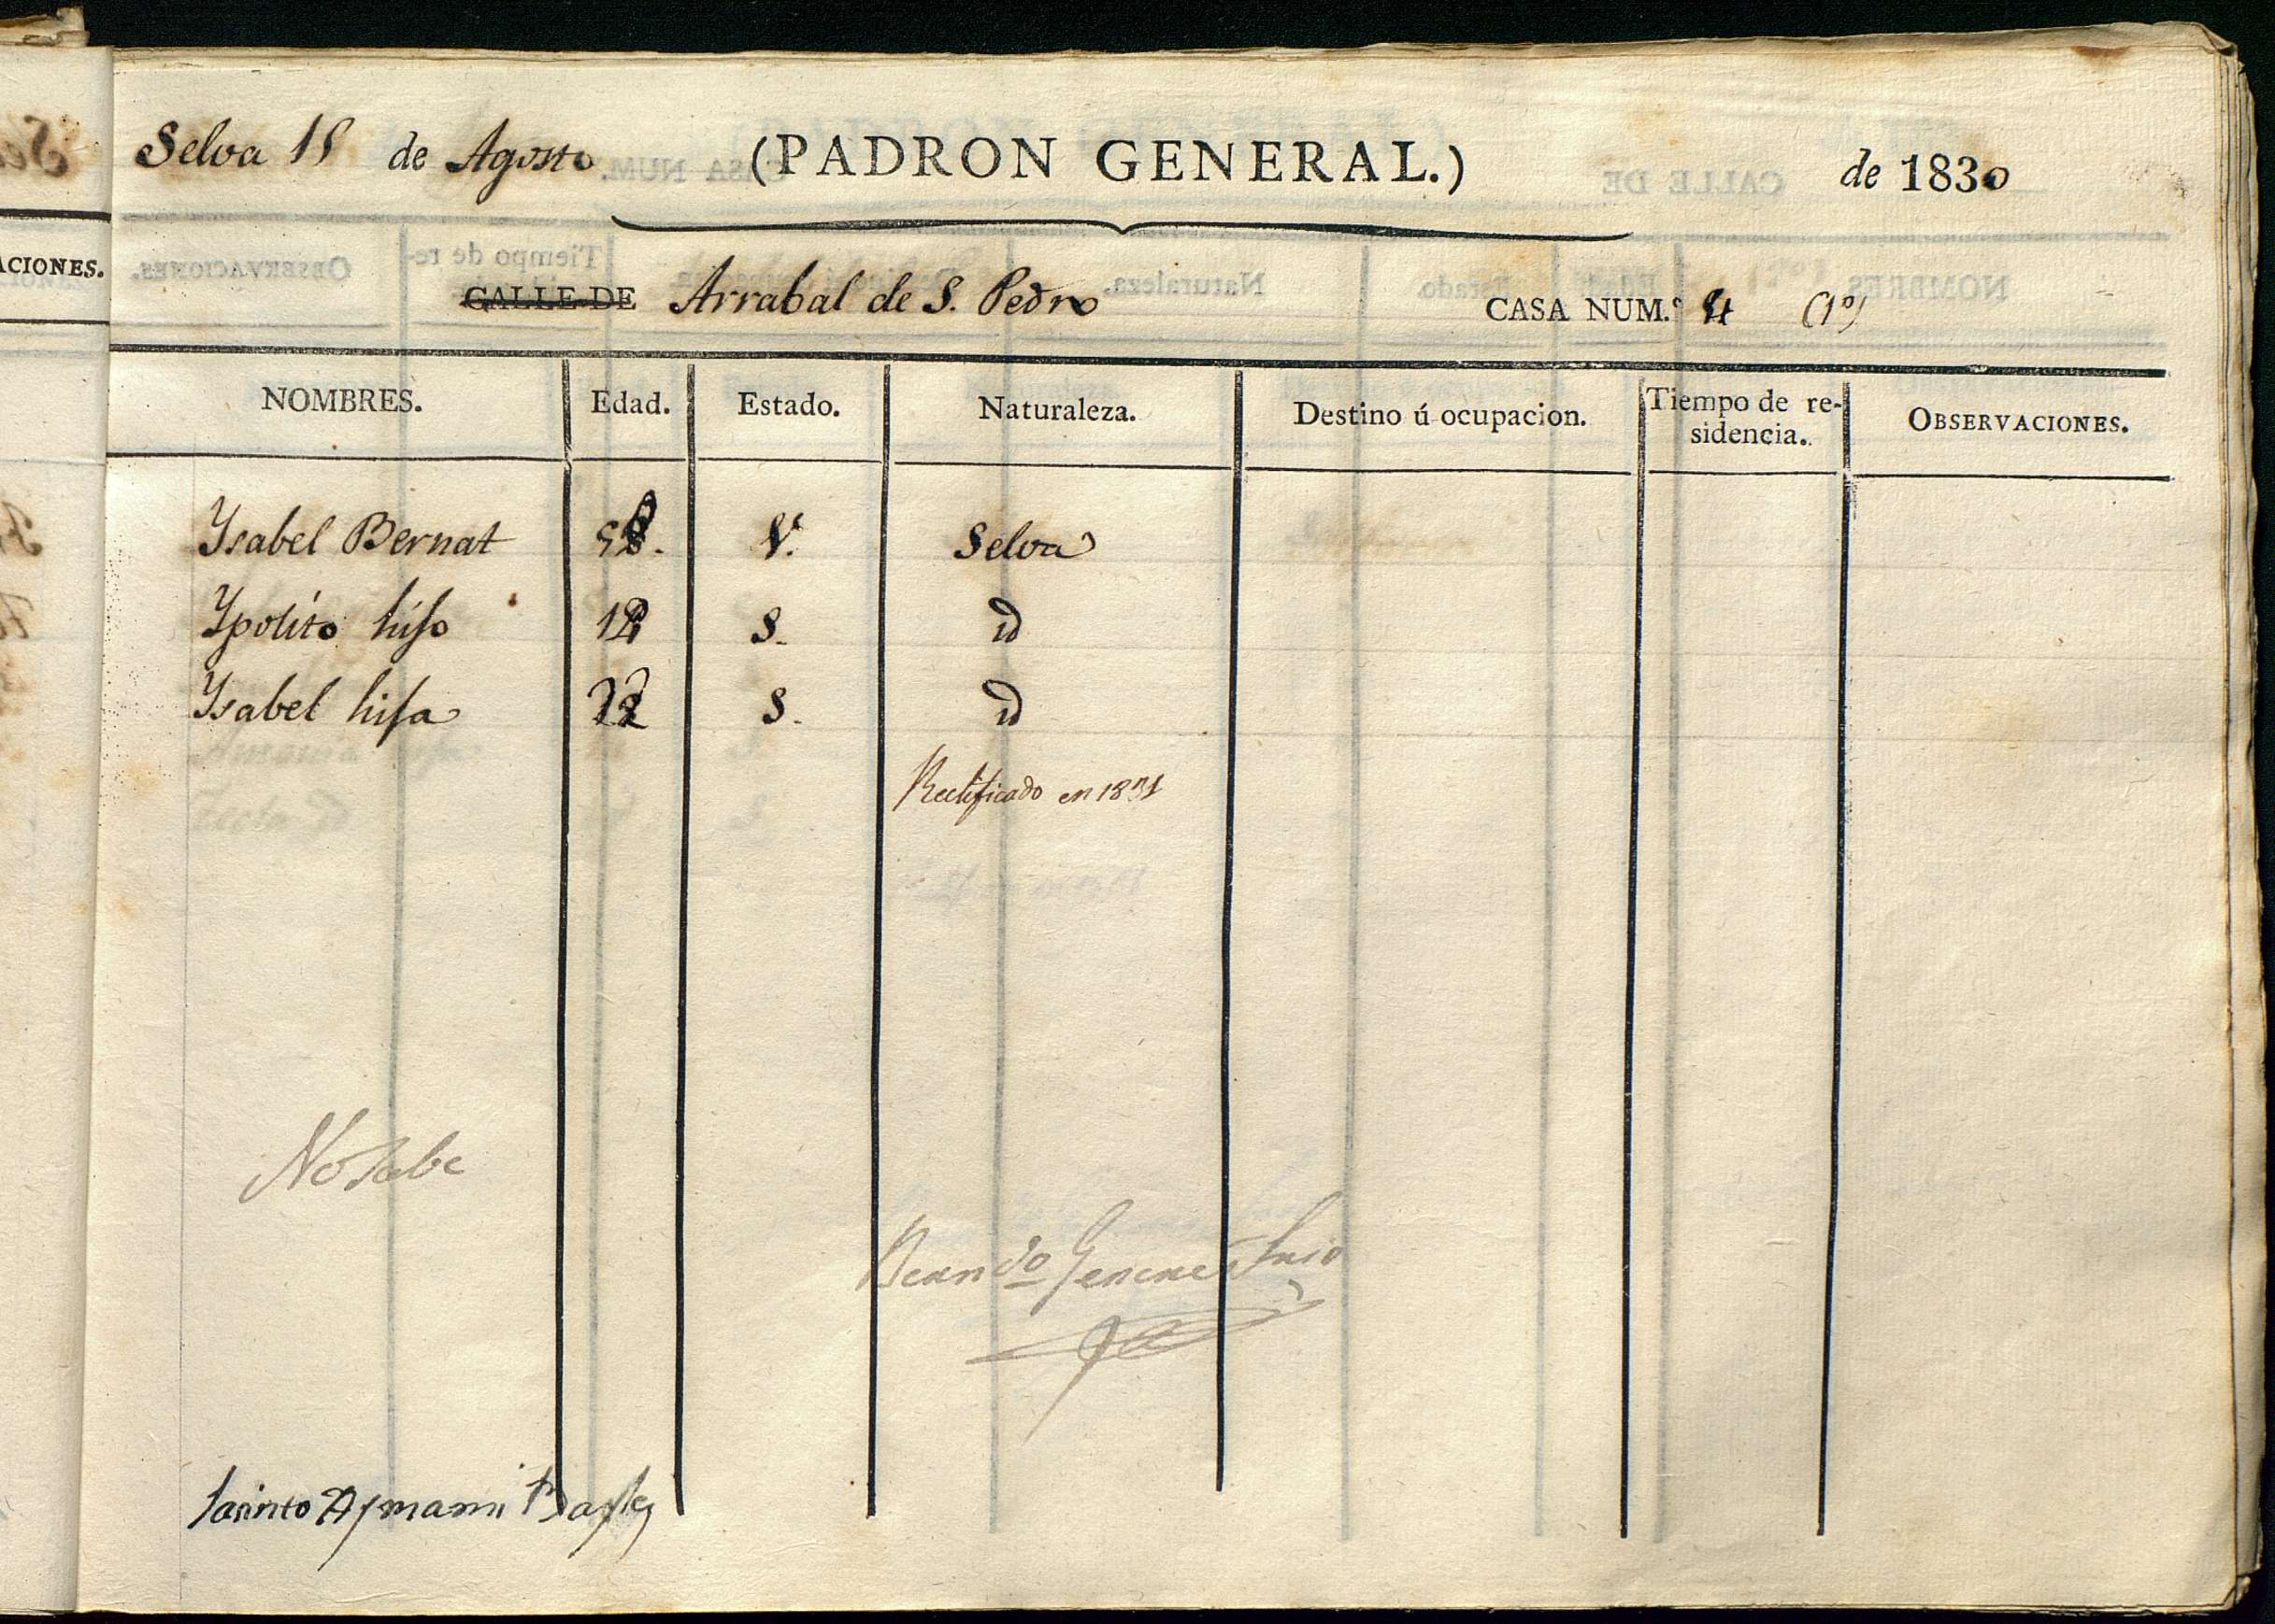 Selva 15 de Agosto (PADRON GENERAL.) de 1830
CALLE DE Arrabal de S. Pedro CASA NUM.º 4 (1º)
NOMBRES. Edad. Estado. Naturaleza. Destino ú ocupacion. Tiempo de re-
sidencia. OBSERVACIONES.
ACIONES.
Ysabel Bernat V. Selva
Ypolito hijo S. id
Ysabel hija S. id
Rectificado en 1831
No sabe
Jacinto Aymami Bayle